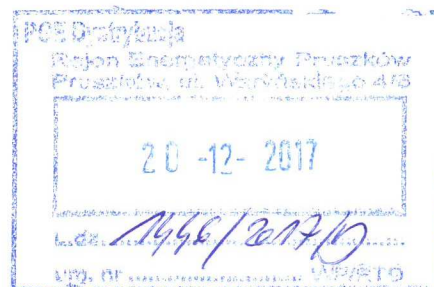 PGE Dystrybucja
Rejon Energetyczny Pruszków
Pruszków, ul. Waryńskiego 4/6
20 -12- 2017
L.dz. 1446/2017/